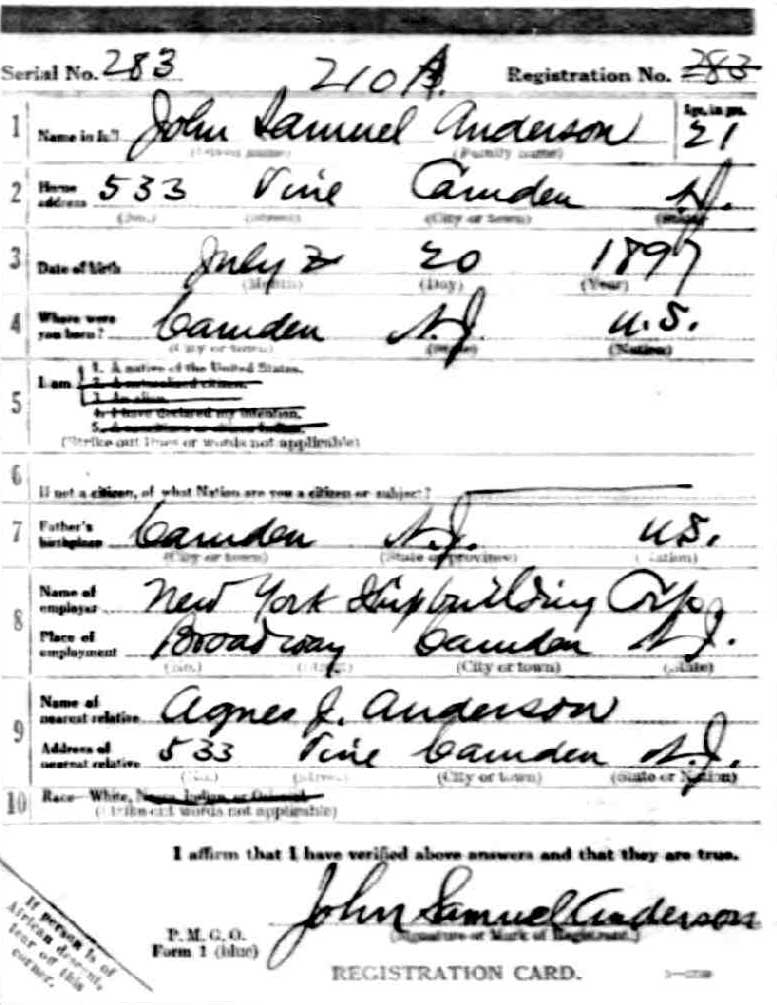 Serial No. 283 210 A. Registration No. 283
1 Name in full John Samuel Anderson Age, in yrs. 21
(Given name) (Family name)
2 Home address 533 Vine Camden N.J.
(No.) (Street) (City or town) (State)
3 Date of birth July 20 1897
(Month) (Day) (Year)
4 Where were you born? Camden N.J. U.S.
(City or town) (State) (Nation)
5 I am
1. A native of the United States.
2. A naturalized citizen.
3. An alien.
4. I have declared my intention.
5.
(Strike out lines or words not applicable)
6 If not a citizen, of what Nation are you a citizen or subject?
7 Father's birthplace Camden N.J. U.S.
(City or town) (State or province) (Nation)
8 Name of employer New York Shipbuilding Corp
Place of employment Broadway Camden N.J.
(No.) (Street) (City or town) (State)
9 Name of nearest relative Agnes J. Anderson
Address of nearest relative 533 Vine Camden N.J.
(No.) (Street) (City or town) (State or Nation)
10 Race—White, Negro, Indian, or Oriental
(Strike out words not applicable)
I affirm that I have verified above answers and that they are true.
John Samuel Anderson
(Signature or Mark of Registrant.)
P. M. G. O.
Form 1 (blue)
REGISTRATION CARD.
If person is of
African descent,
tear off this
corner.